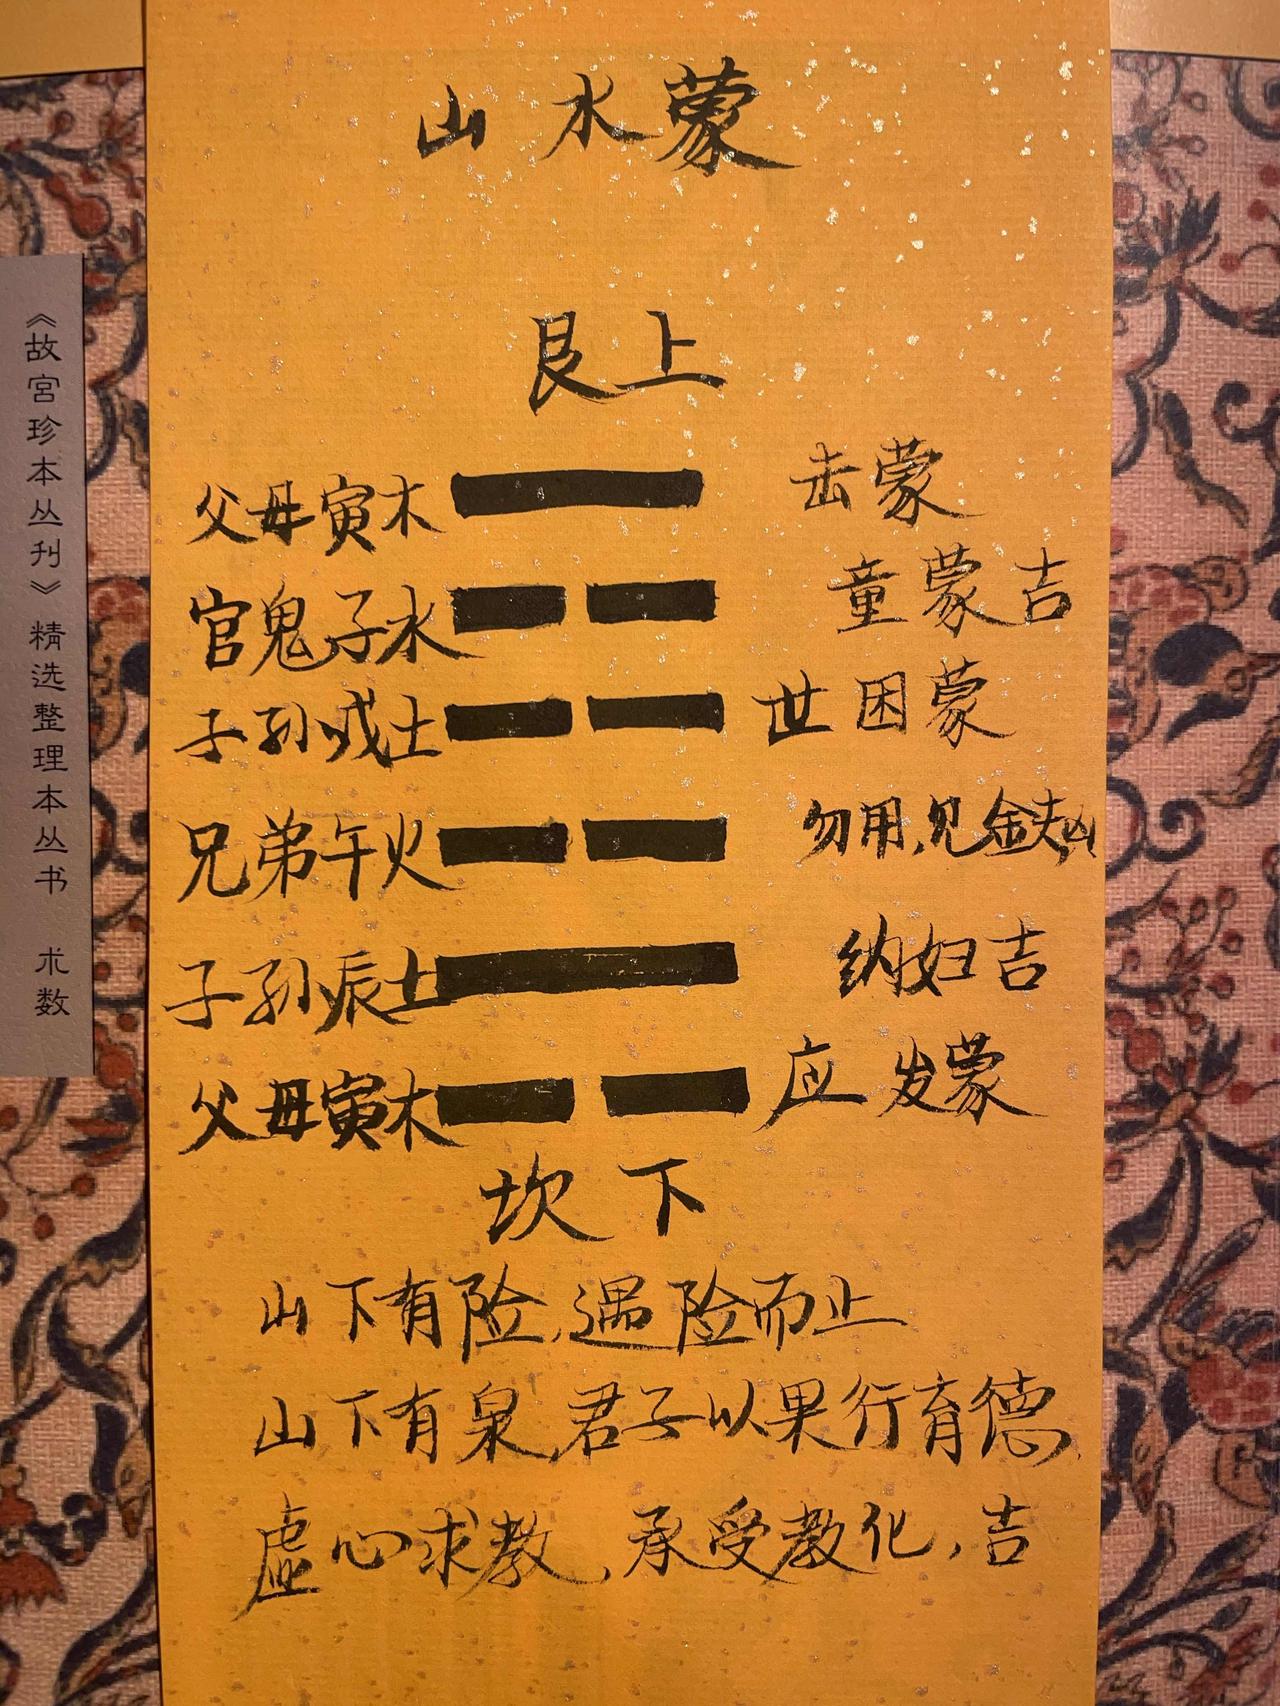 山水蒙
艮上
父母寅木 击蒙
官鬼子水 童蒙吉
子孙戌土 世 困蒙
兄弟午火 勿用,见金夫凶
子孙辰土 纳妇吉
父母寅木 应 发蒙
坎下
山下有险,遇险而止
山下有泉,君子以果行育德,
虚心求教,承受教化,吉
《故宫珍本丛刊》精选整理本丛书 术数